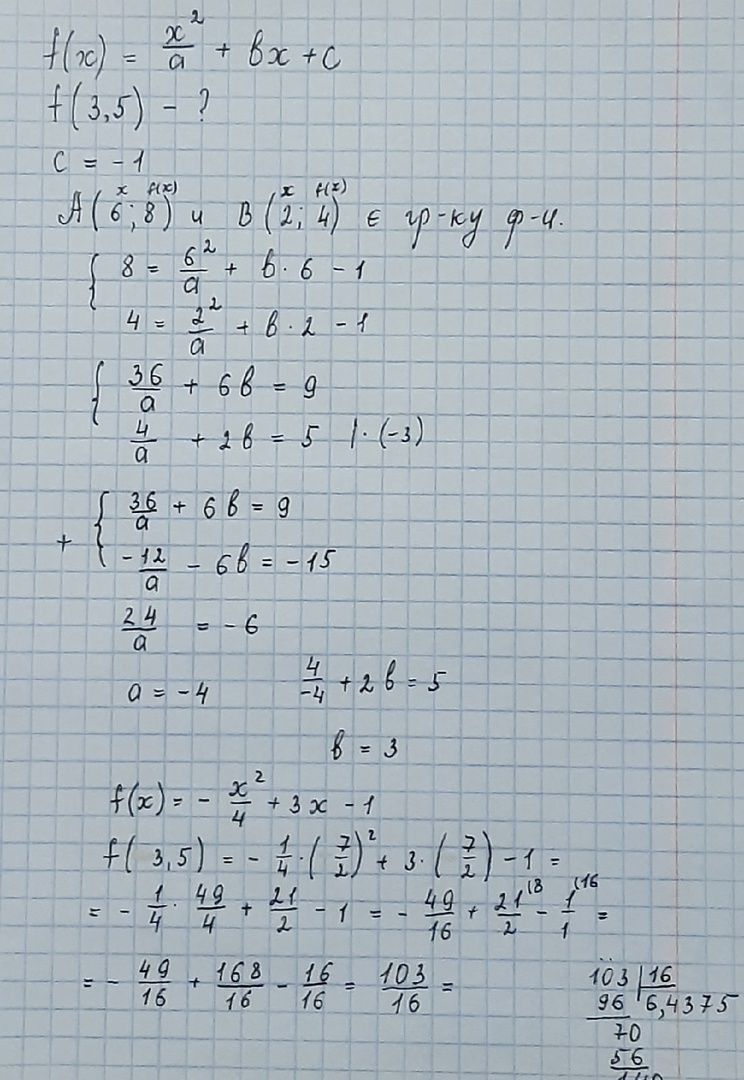 f(x) = x²/a + bx + c
f(3,5) - ?
c = -1
x f(x) x f(x)
A(6; 8) и B(2; 4) ∈ гр-ку ф-и.
{ 8 = 6²/a + b·6 - 1
4 = 2²/a + b·2 - 1
{ 36/a + 6b = 9
4/a + 2b = 5 |·(-3)
+ { 36/a + 6b = 9
-12/a - 6b = -15
24/a = -6
a = -4 4/-4 + 2b = 5
b = 3
f(x) = - x²/4 + 3x - 1
f(3,5) = - 1/4 · (7/2)² + 3·(7/2) - 1 =
= - 1/4 · 49/4 + 21/2 - 1 = - 49/16 + 21/2 (8 - 1/1 (16 =
= - 49/16 + 168/16 - 16/16 = 103/16 =
103 | 16
96 6,4375
70
56